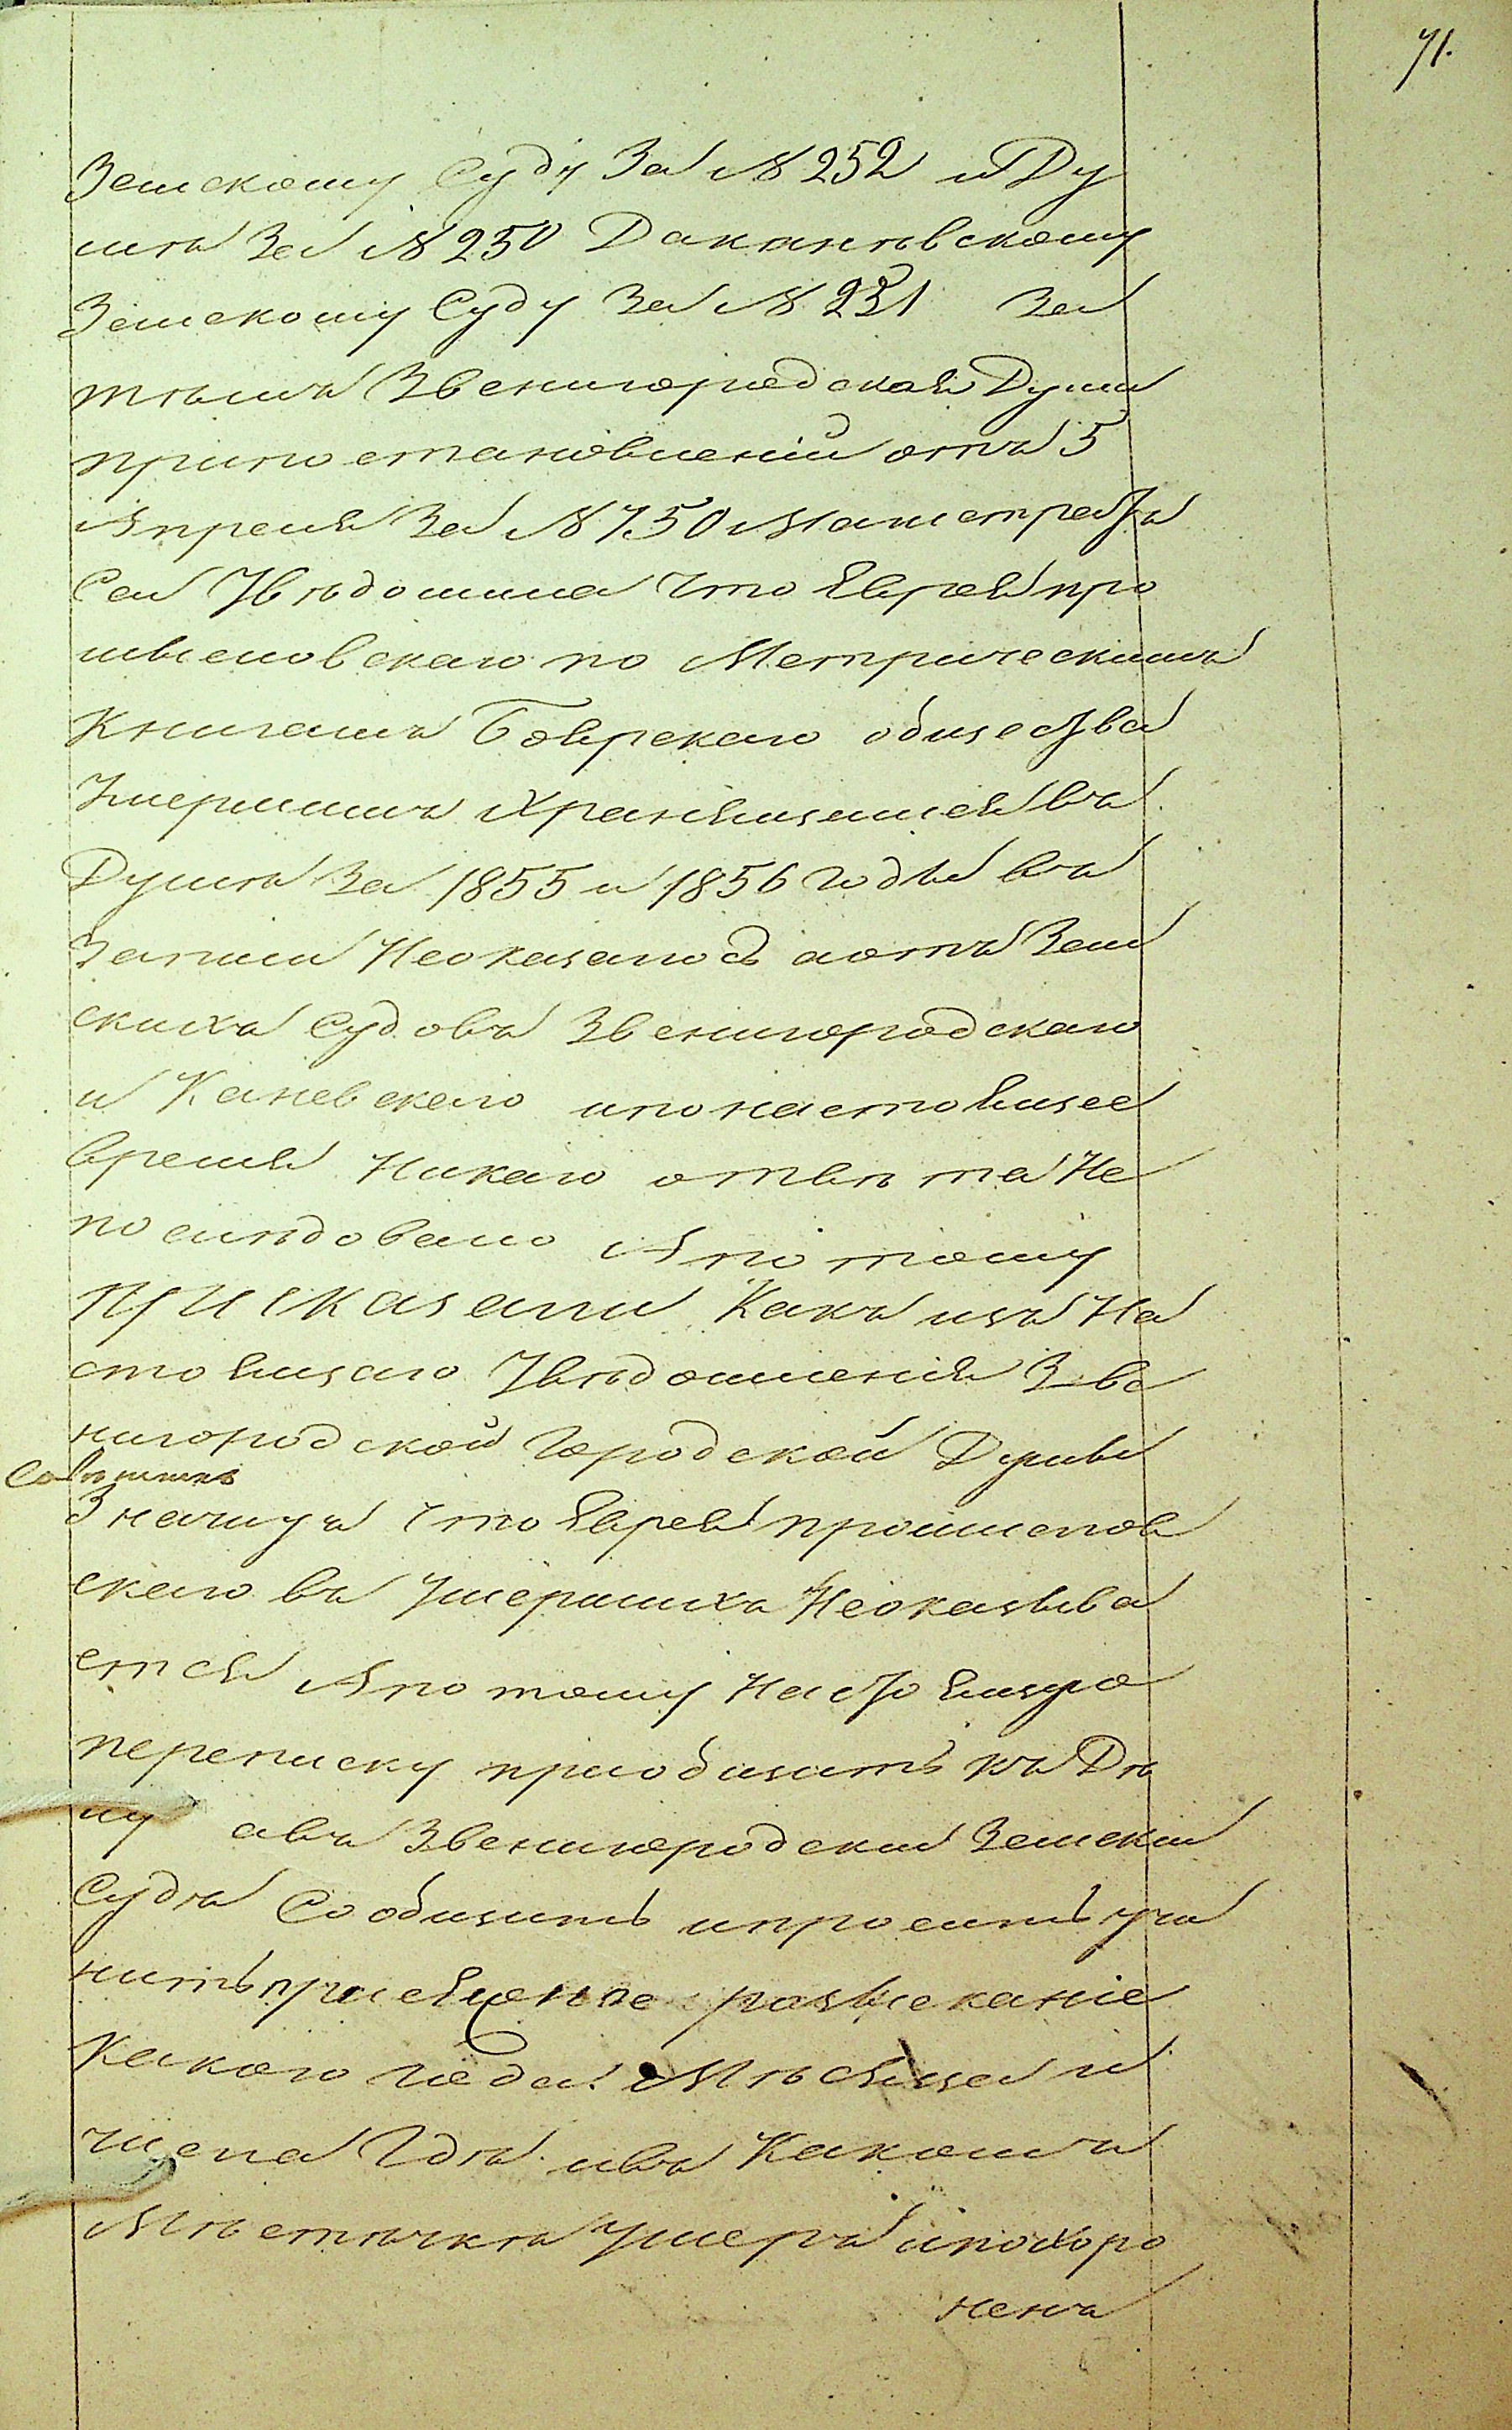 71.
Земскому Суду За № 252 и Ду
мѣ За № 250 Земскому
Земскому Суду За № 251 За
тѣмъ Звенигородская Дума
при отъ 5
Апреля За № 750 Магистратъ
Сей Увѣдомила Что Еврей про
шысловскаго по Метрическимъ
Книгамъ Боярскаго общества
Умершимъ Хранящимся въ
Думѣ За 1855 и 1856 годы въ
Записи Неоказалось аотъ Зем
скихъ Судовъ Звенигородскаго
и Каневскаго ипонастоящее
время Никаго отвѣта Не
послѣдовало Апотому
приказали Какъ изъ На
стоящаго Увѣдомленія Зве
нигородской Городской Думы
Значитъ Что Еврей прошислов
скаго въ Умершихъ Неоказыва
ется Апотому Настоящую
переписку приобщить къ Дѣ
лу авъ Звенигородскій Земскій
Судъ Сообщить ипросить учи
нить розысканіе
Какого года Мѣсяца и
числа Гдѣ ивъ Какомъ
Мѣстечкѣ Умеръ ипохоро
ненъ